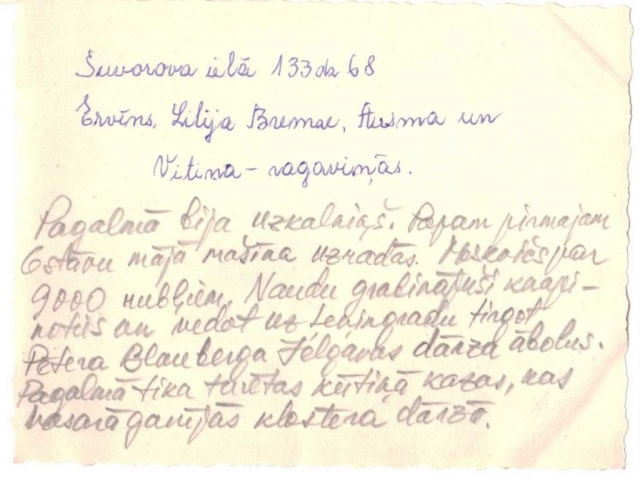 Suvorova ielā 133 dz 68
Ervīns, Lilija Bremze, Ausma un
Vitiņa - ragaviņās.
Pagalmā bija uzkalniņš. Papam pirmajam
6 stāvu mājā mašīna uzradās. Moskvičs par
9000 rubļiem. Naudu grabinājuši kaapi-
notis un vedot uz Ļeningradu tirgot
Pētera Blauberga Jelgavas dārza ābolus.
Pagalmā tika turētas kūtiņā kazas, kas
vasarā ganījās klostera dārzā.